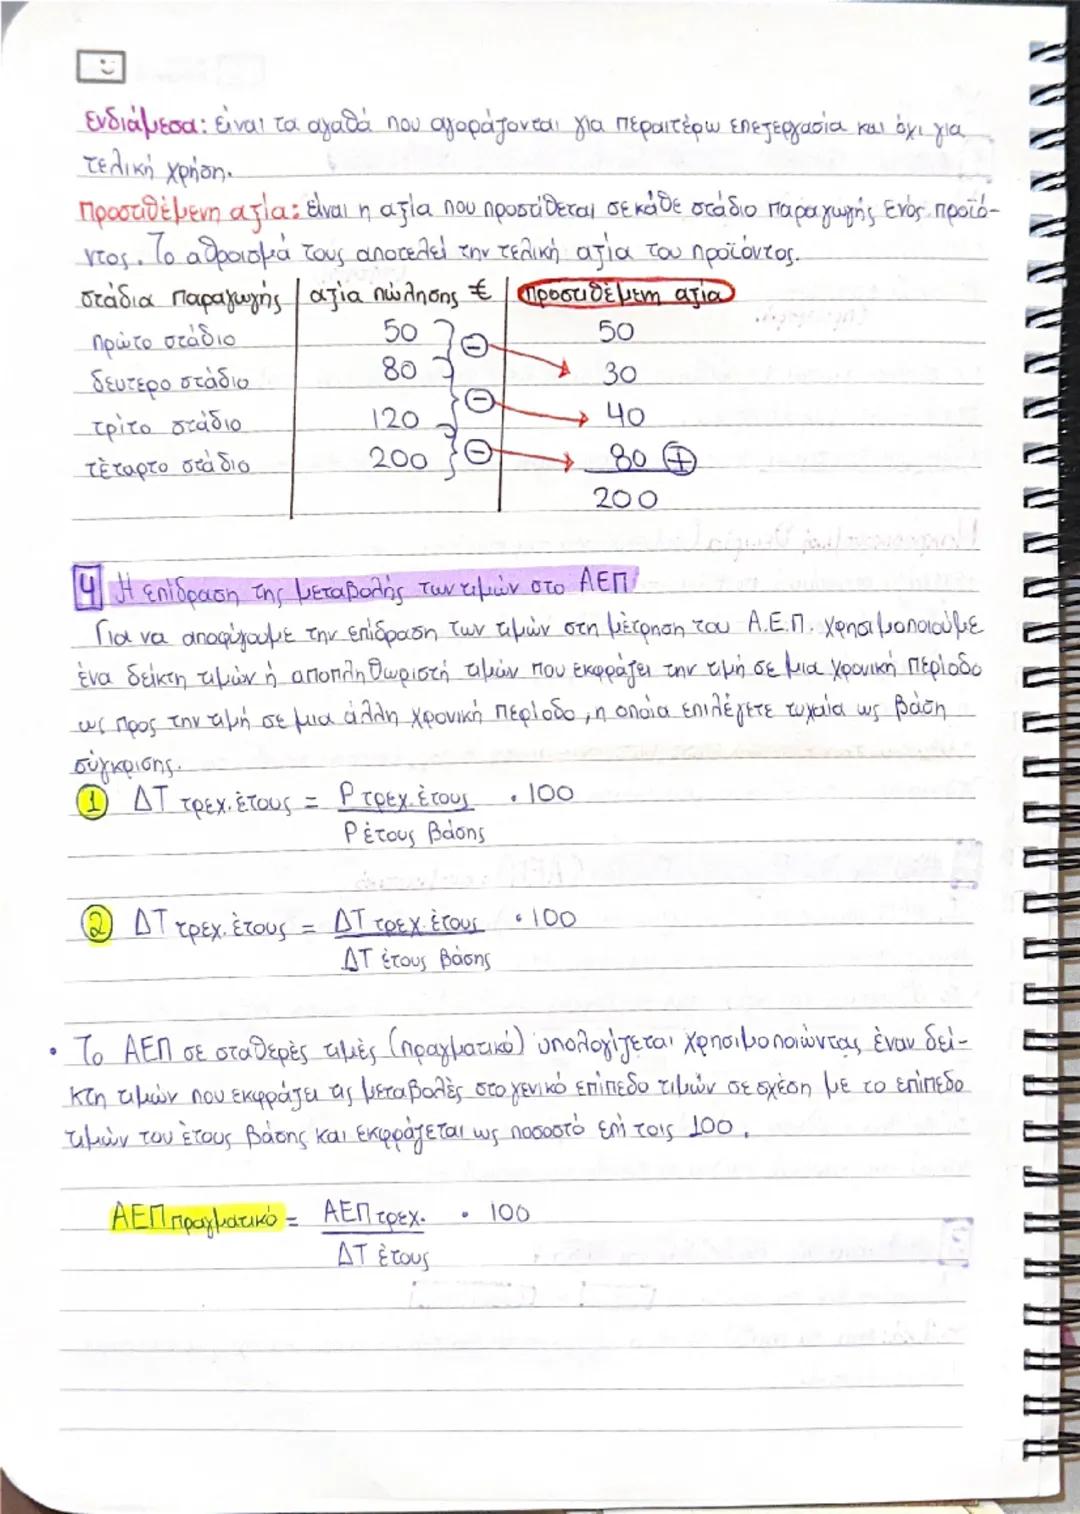 Ενδιάμεσα: είναι τα αγαθά που αγοράζονται για περαιτέρω επεξεργασία και όχι για
τελική χρήση.
Προστιθέμενη αξία: είναι η αξία που προστίθεται σε κάθε στάδιο παραγωγής ενός προϊό-
ντος. Το άθροισμά τους αποτελεί την τελική αξία του προϊόντος.
στάδια παραγωγής | αξία πώλησης € | προστιθέμενη αξία
πρώτο στάδιο 50 ⊖ 50
δεύτερο στάδιο 80 30
τρίτο στάδιο 120 ⊖ 40
τέταρτο στάδιο 200 ⊖ 80 ⊕
200
4 Η επίδραση της μεταβολής των τιμών στο ΑΕΠ
Για να αποφύγουμε την επίδραση των τιμών στη μέτρηση του Α.Ε.Π. χρησιμοποιούμε
ένα δείκτη τιμών ή αποπληθωριστή τιμών που εκφράζει την τιμή σε μια χρονική περίοδο
ως προς την τιμή σε μια άλλη χρονική περίοδο, η οποία επιλέγετε τυχαία ως βάση
σύγκρισης.
1 ΔΤ τρεχ. έτους = P τρεχ. έτους · 100
P έτους βάσης
2 ΔΤ τρεχ. έτους = ΔΤ τρεχ. έτους · 100
ΔΤ έτους βάσης
• Το ΑΕΠ σε σταθερές τιμές (πραγματικό) υπολογίζεται χρησιμοποιώντας έναν δεί-
κτη τιμών που εκφράζει τις μεταβολές στο γενικό επίπεδο τιμών σε σχέση με το επίπεδο
τιμών του έτους βάσης και εκφράζεται ως ποσοστό επί τοις 100.
ΑΕΠ πραγματικό = ΑΕΠ τρεχ. · 100
ΔΤ έτους